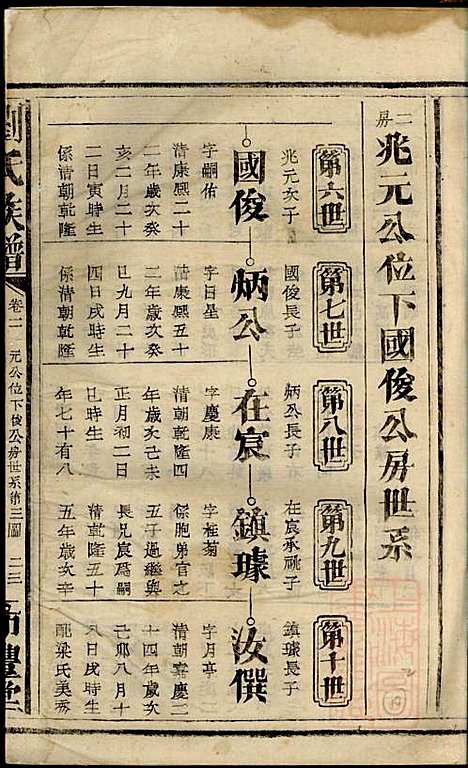 二房
兆元公位下國俊公房世系
第六世
兆元次子
國俊
字嗣佑
清康熙二十
二年歲次癸
亥二月二十
二日寅時生
係清朝乾隆
第七世
國俊長子
炳公
字日星
清康熙五十
二年歲次癸
巳九月二十
四日戌時生
係清朝乾隆
第八世
炳公長子
在宸
字慶康
清朝乾隆四
年歲次己未
正月初二日
巳時生
年七十有八
第九世
在宸承祧子
鎮璩
字桂菊
係胞弟官之
五子過繼與
長兄宸為嗣
乾隆五十
五年歲次辛
第十世
鎮璩長子
汝僎
字月亭
清朝嘉慶二
十四年歲次
己卯八月十
八日戌時生
配梁氏美秀
劉氏族譜
卷二
元公位下俊公房世系第三圖
二三